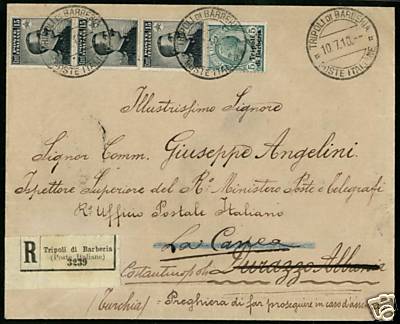 TRIPOLI DI BARBERIA
10.7.10
POSTE ITALIANE
Illustrissimo Signore
Signor Comm. Giuseppe Angelini.
Ispettore Superiore del R° Ministero Poste e Telegrafi
R° Uffizio Postale Italiano
La Canea
Costantinopoli Durazzo Albania
(Turchia) = Preghiera di far proseguire in caso d'assenza
R
Tripoli di Barberia
(Poste Italiane)
3239